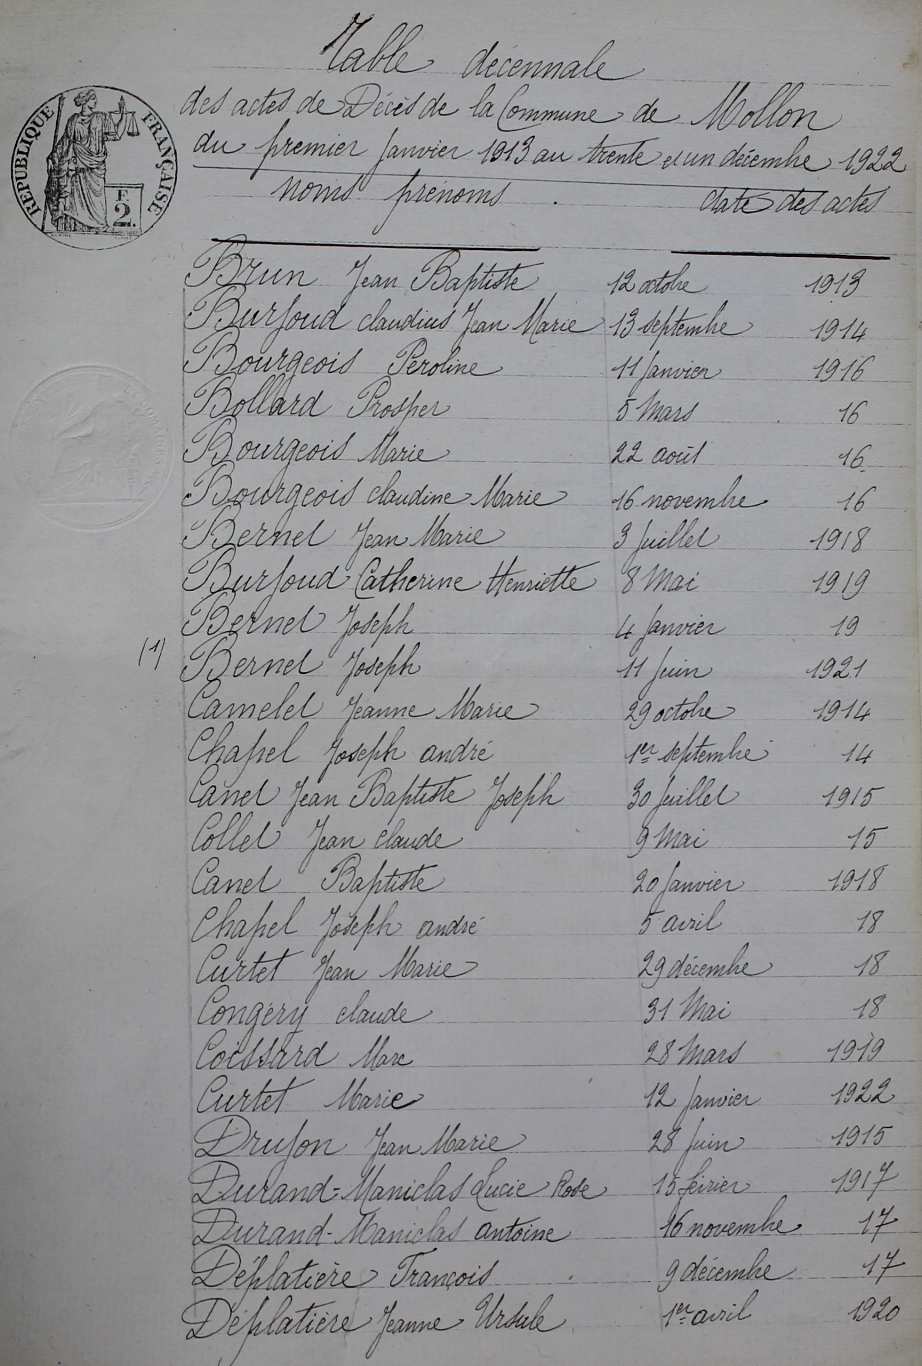 Table décennale
des actes de Décès de la Commune de Mollon
du premier Janvier 1913 au trente et un décembre 1922
RÉPUBLIQUE FRANÇAISE
F.
2.
noms prénoms date des actes
Brun Jean Baptiste 12 octobre 1913
Burfoud claudius Jean Marie 13 septembre 1914
Bourgeois Péroline 11 Janvier 1916
Bollard Prosper 5 Mars 16
Bourgeois Marie 22 août 16
Bourgeois claudine Marie 16 novembre 16
Bernet Jean Marie 3 Juillet 1918
Burfoud Catherine Henriette 8 Mai 1919
Bernet Joseph 4 Janvier 19
(1) Bernet Joseph 11 Juin 1921
Camelet Jeanne Marie 29 octobre 1914
Chapel Joseph andré 1er septembre 14
Canet Jean Baptiste Joseph 30 Juillet 1915
Collet Jean claude 9 Mai 15
Canet Baptiste 20 Janvier 1918
Chapel Joseph andré 5 avril 18
Curtet Jean Marie 29 décembre 18
Congery claude 31 Mai 18
Coissard Marc 28 Mars 1919
Curtet Marie 12 Janvier 1922
Drujon Jean Marie 28 Juin 1915
Durand-Maniclas Lucie Rose 15 février 1917
Durand-Maniclas antoine 16 novembre 17
Déplatière François 9 décembre 17
Déplatière Jeanne Ursule 1er avril 1920